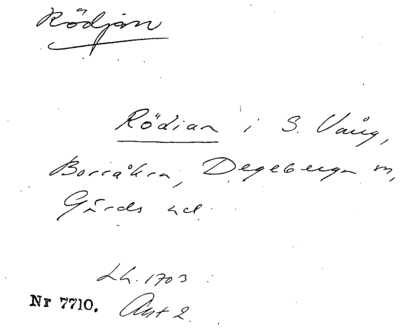 Rödjan
Rödian i S. Vång,
Borråkra, Degeberga m,
Gärds hd.
Lh. 1703
Nr 7710. Akt 2.